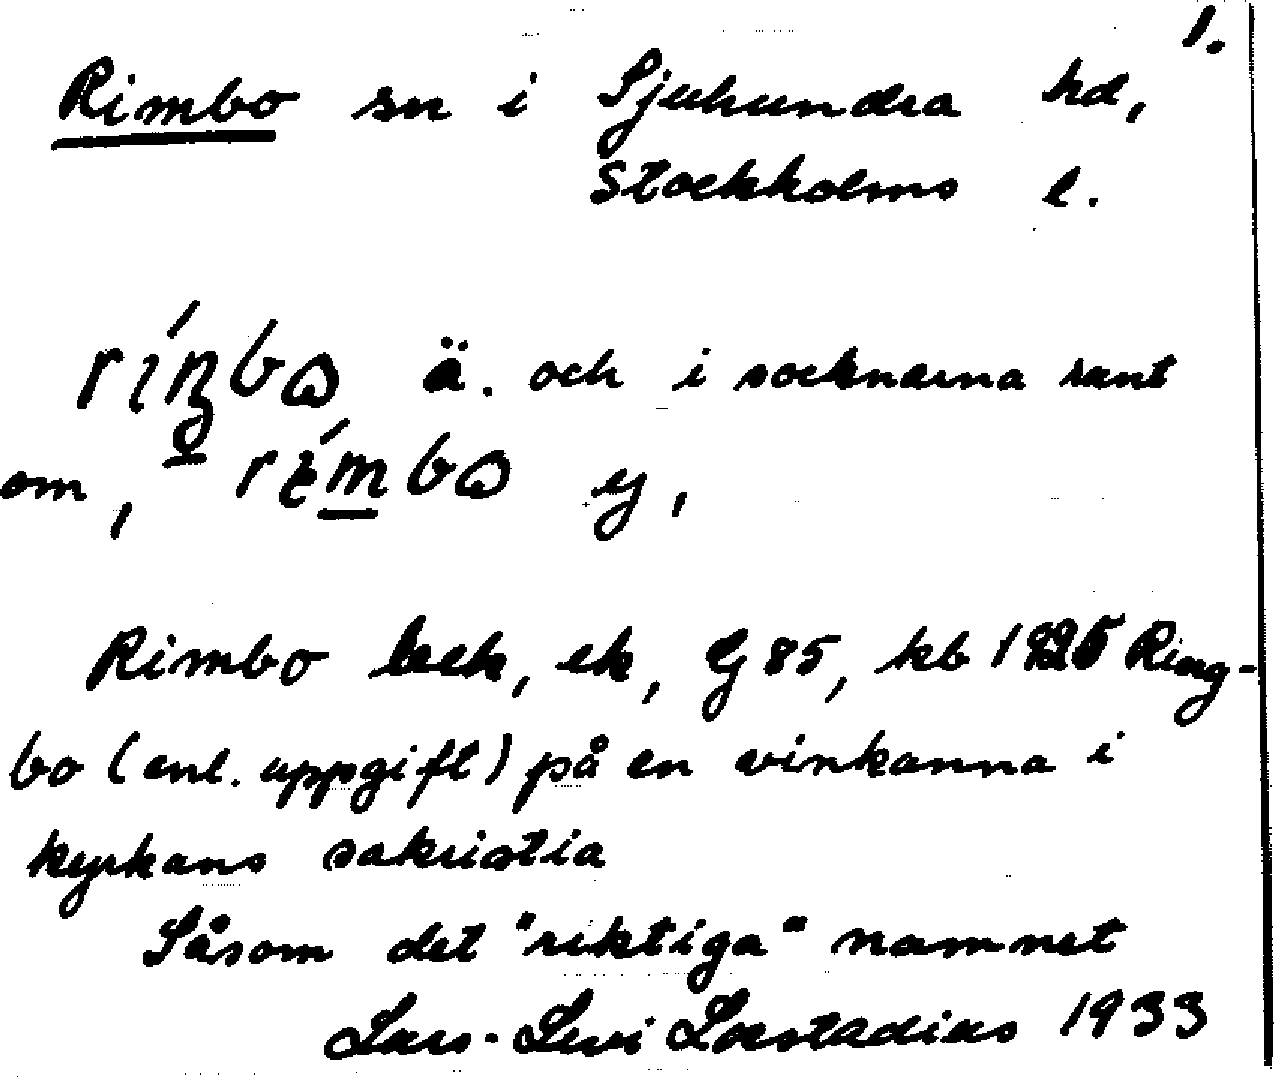 1.
Rimbo sn i Sjuhundra hd,
Stockholms l.
ríŋbo ä. och i socknarna runt
om, rímbo y,
Rimbo beck, ek, G85, kb Ring-
bo (enl. uppgift) på en vinkanna i
kyrkans sakristia
Såsom det "riktiga" namnet
Lars-Levi Læstadius 1933